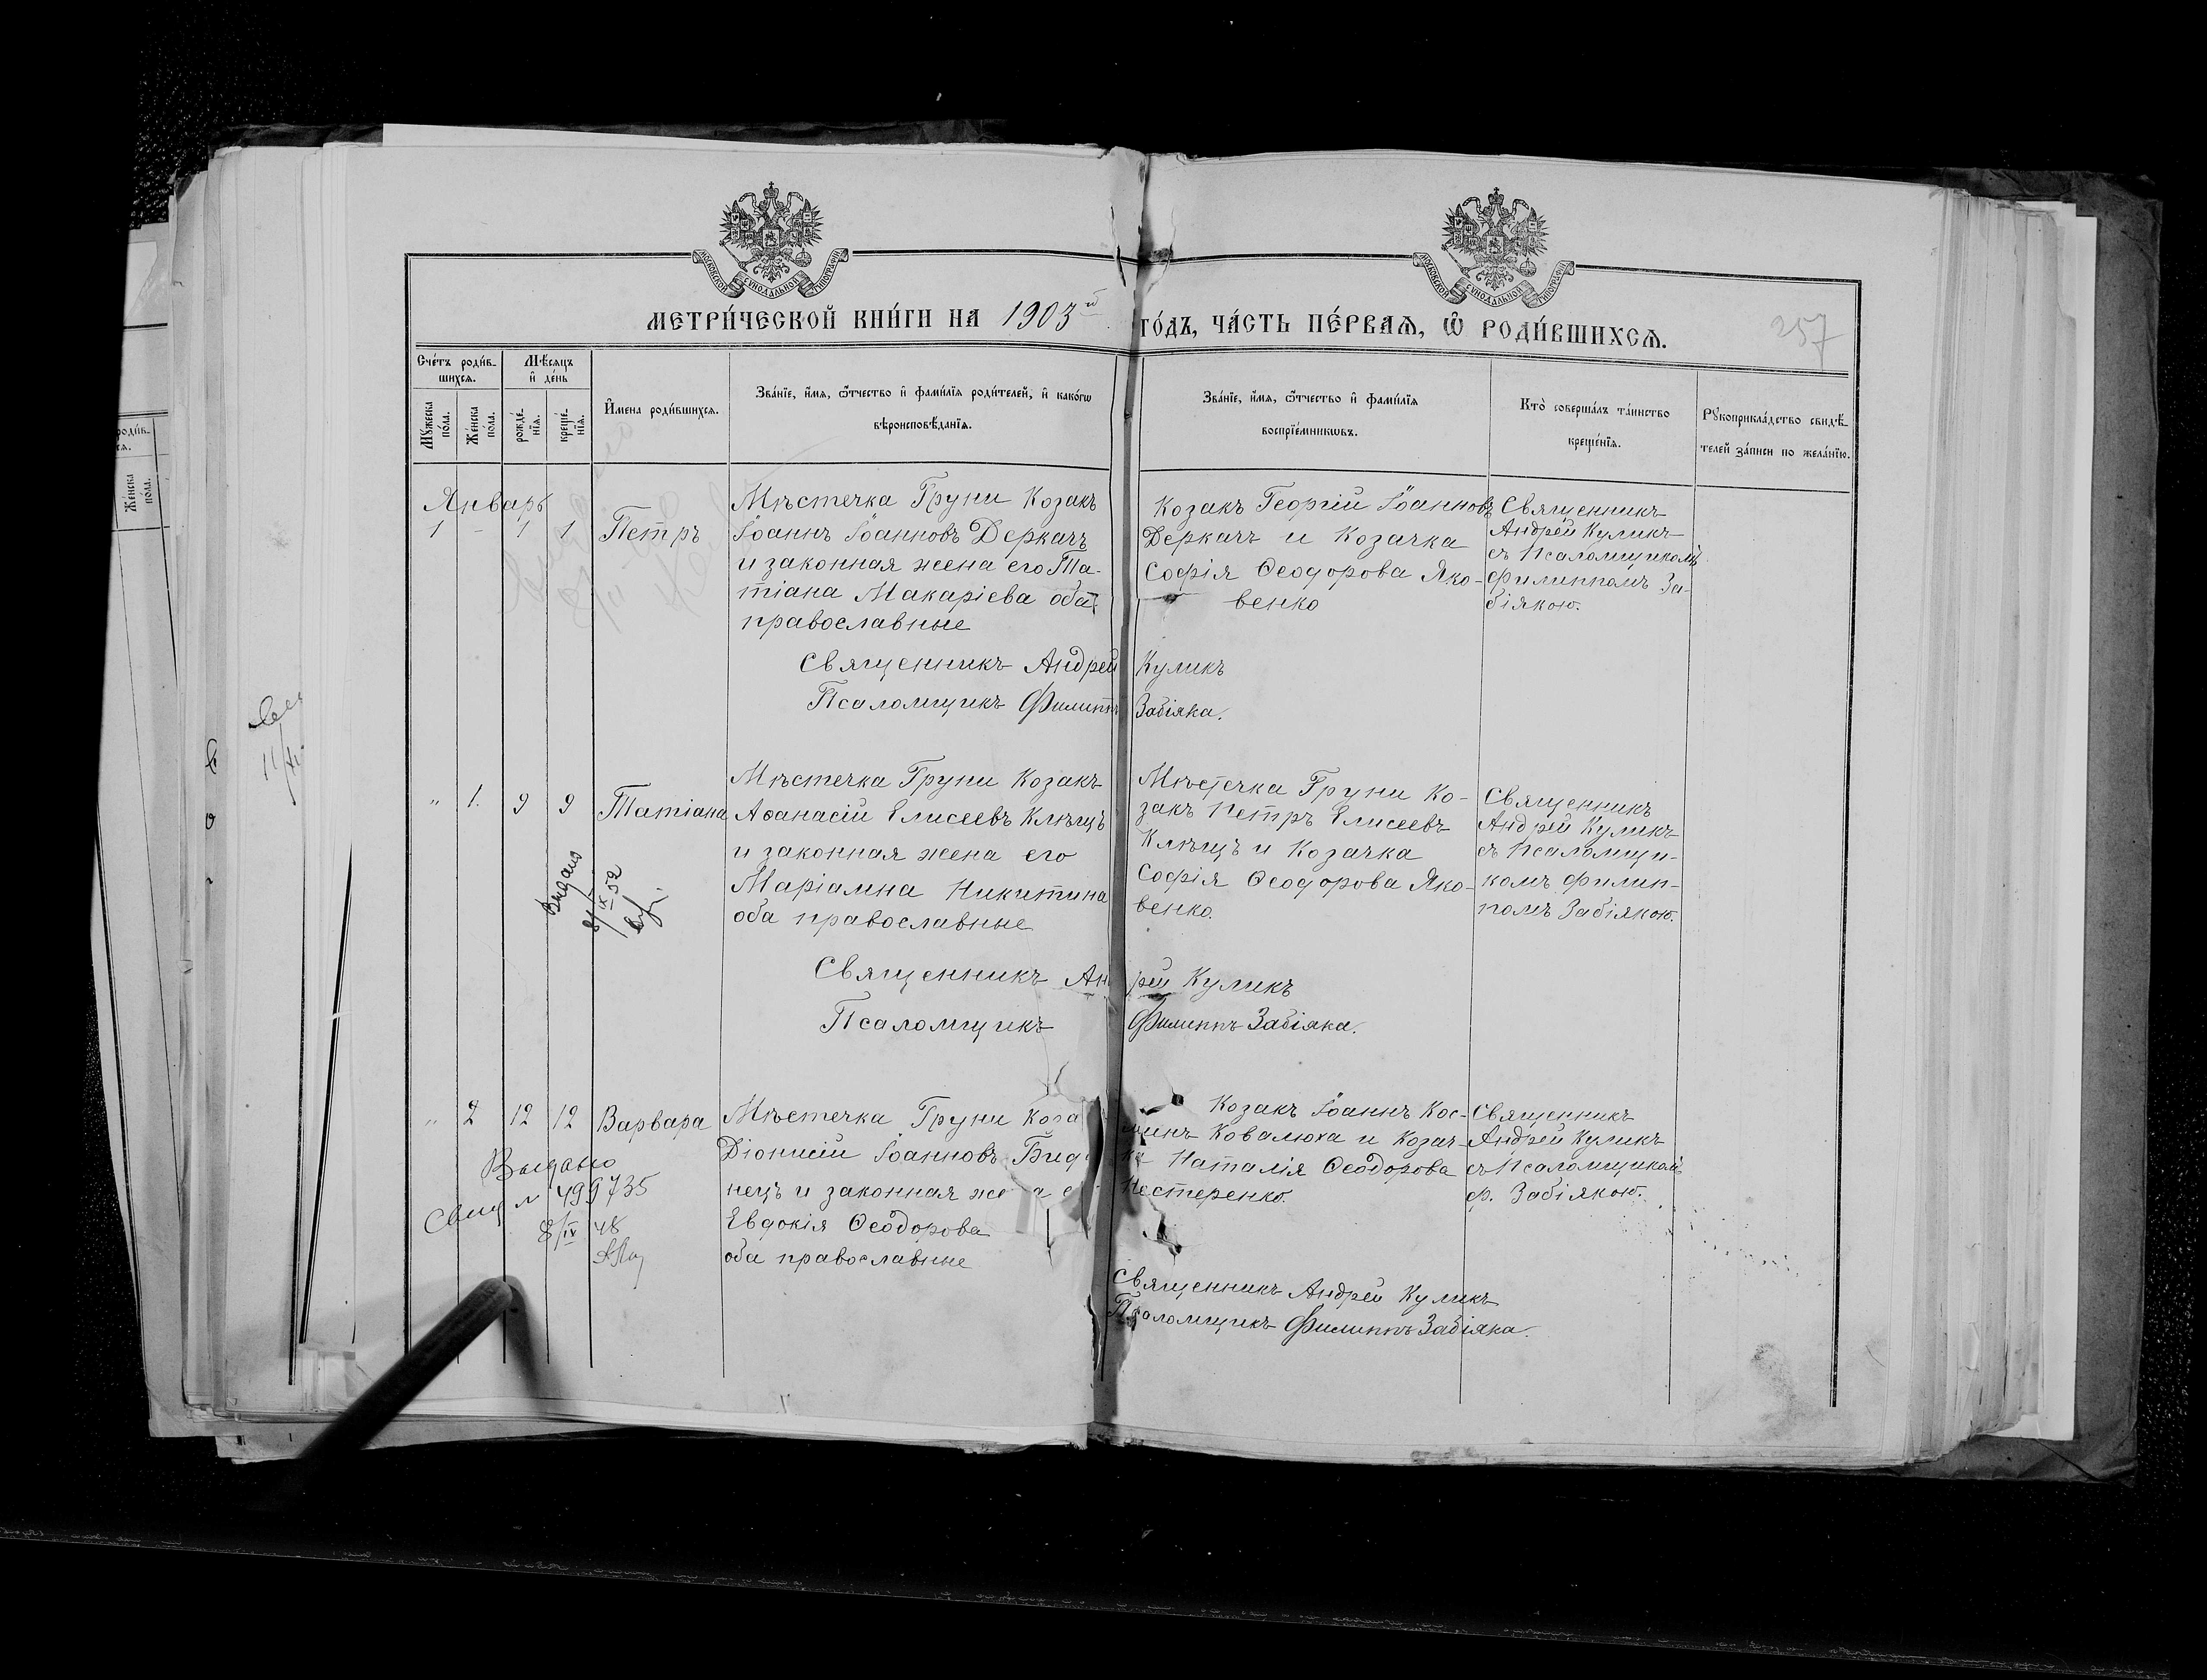 МОСКОВСКОЙ СѴНОДАЛЬНОЙ ТИПОГРАФІИ
МОСКОВСКОЙ СѴНОДАЛЬНОЙ ТИПОГРАФІИ
МЕТРИ́ЧЕСКОЙ КНИ́ГИ НА 1903й ГО́ДЪ, ЧА́СТЬ ПЕ́РВАѦ, Ѽ РОДИ́ВШИХСѦ.
257
Сче́тъ роди́в-
шихсѧ.
Мѣ́сѧцъ
и҆ де́нь
Мꙋ́жеска
по́ла.
Же́нска
по́ла.
рожде́-
нїѧ.
креще́-
нїѧ.
И҆мена роди́вшихсѧ.
Зва́нїе, и҆́мѧ, ѻ҆́тчество и҆ фами́лїѧ роди́телей, и҆ како́гѡ
вѣроисповѣ́данїѧ.
Зва́нїе, и҆́мѧ, ѻ҆́тчество и҆ фами́лїѧ
воспрїе́мникѡвъ.
Кто̀ соверша́лъ та́инство
креще́нїѧ.
Рꙋкоприкла́дство свидѣ́-
телей за́писи по жела́нїю.
роди́в-
сѧ.
Же́нска
по́ла.
Январь
1 - 1 1 Петръ
Мѣстечка Груни Козакъ
Іоаннъ Іоанновъ Деркачъ
и законная жена его Та-
тіана Макаріева оба
православные
Козакъ Георгій Іоанновъ
Деркачъ и Козачка
Софія Ѳеодорова Яко-
венко
Священникъ
Андрей Куликъ
съ Псаломщикомъ
Филиппомъ За-
біякою.
Священникъ Андрей Куликъ
Псаломщикъ Филиппъ Забіяка.
" 1. 9 9 Татіана
Мѣстечка Груни Козакъ
Аѳанасій Елисеевъ Клѣщъ
и законная жена его
Маріамна Никитина
оба православные
Мѣстечка Груни Ко-
закъ Петръ Елисеевъ
Клѣщъ и Козачка
Софія Ѳеодорова Яко-
венко.
Священникъ
Андрей Куликъ
съ Псаломщи-
комъ Филип-
помъ Забіякою.
Выдано
8/IX-52
Священникъ Ан рей Куликъ
Псаломщикъ Филиппъ Забіяка.
" 2 12 12 Варвара
Мѣстечка Груни Коза
Діонисій Іоанновъ Бид
нецъ и законная же а е
Евдокія Ѳеодорова
оба православные
Козакъ Іоаннъ Кос-
минъ Ковалюха и Козач-
ка Наталія Ѳеодорова
Нестеренко.
Священникъ
Андрей Куликъ
съ Псаломщикомъ
Ф. Забіякою.
Выдано
Свид N 499735
8/IV 48
Священникъ Андрей Куликъ
Псаломщикъ Филиппъ Забіяка.
11/XI